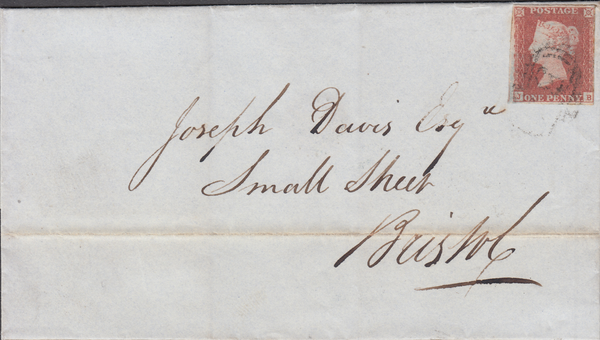 POSTAGE
ONE PENNY
B
Joseph Davis Esqr
Small Street
Bristol